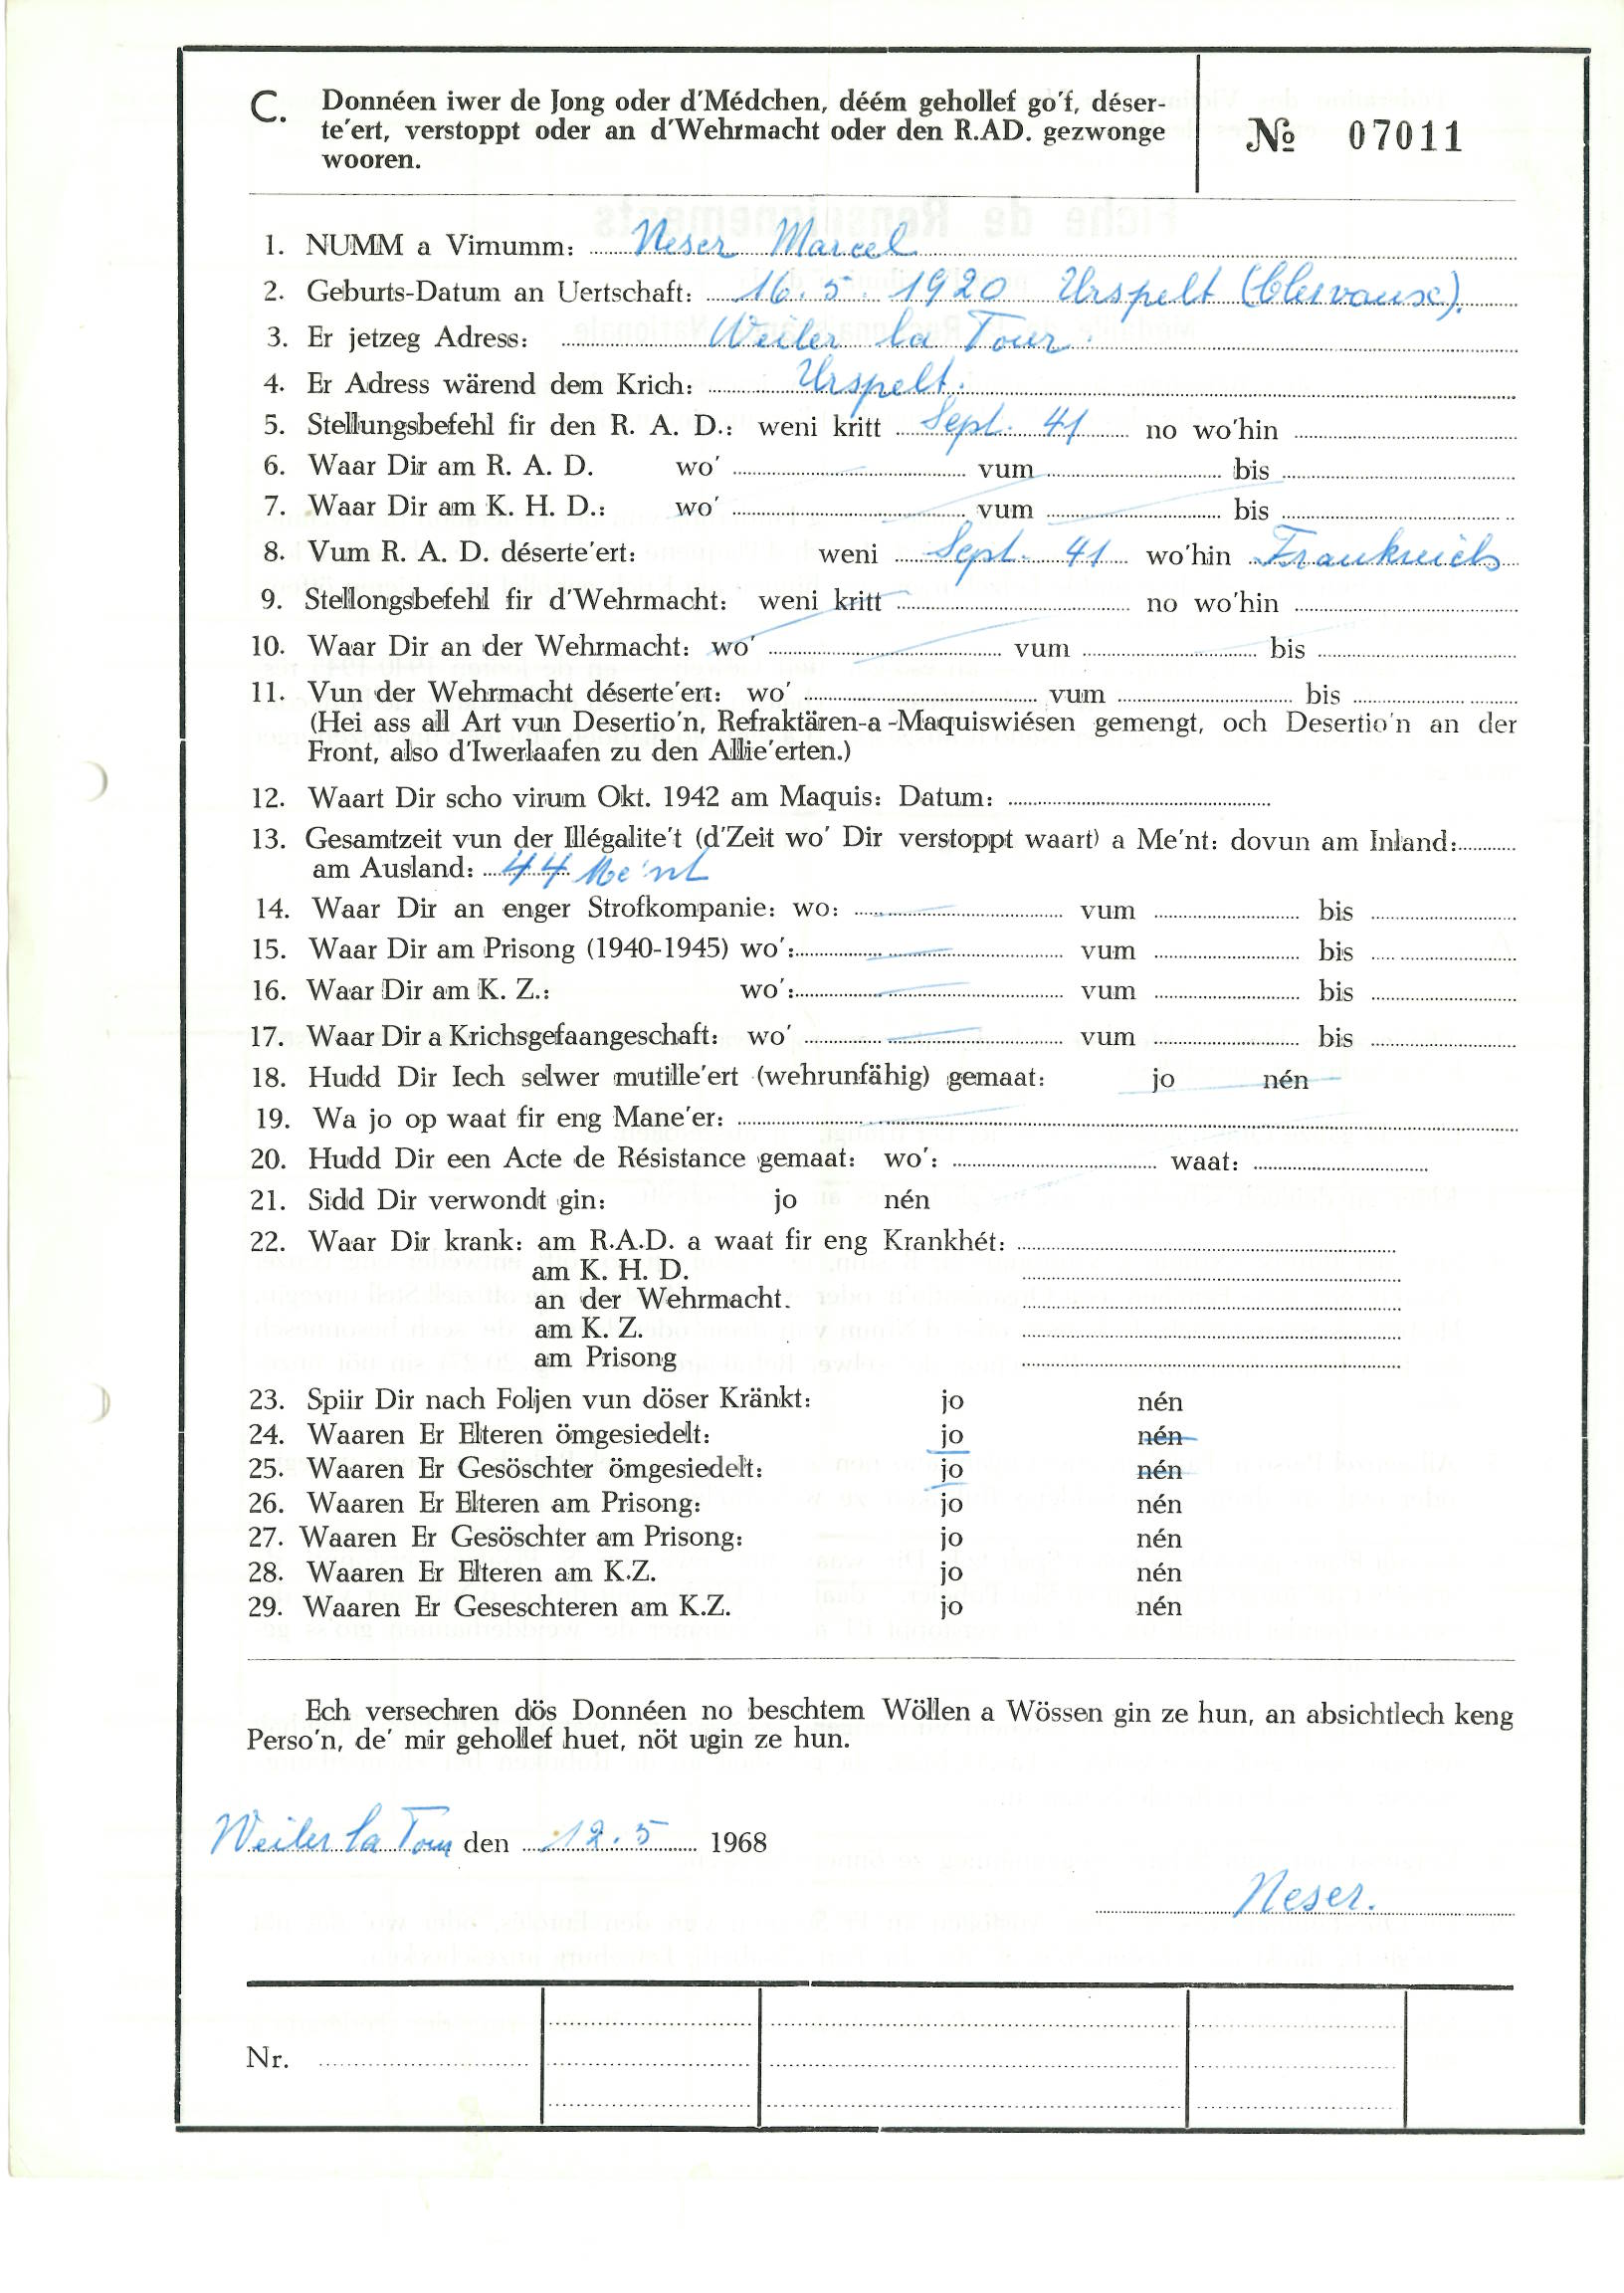 C. Donnéen iwer de Jong oder d'Médchen, déém gehollef go'f, déser-
te'ert, verstoppt oder an d'Wehrmacht oder den R.AD. gezwonge
wooren.
№ 07011
1. NUMM a Virnumm: Neser Marcel
2. Geburts-Datum an Uertschaft: 16.5.1920 Urspelt (Clervaux).
3. Er jetzeg Adress: Weiler la Tour.
4. Er Adress wärend dem Krich: Urspelt.
5. Stellungsbefehl fir den R. A. D.: weni kritt Sept. 41 no wo'hin
6. Waar Dir am R. A. D. wo' vum bis
7. Waar Dir am K. H. D.: wo' vum bis
8. Vum R. A. D. déserte'ert: weni Sept. 41 wo'hin Frankreich
9. Stellongsbefehl fir d'Wehrmacht: weni kritt no wo'hin
10. Waar Dir an der Wehrmacht: wo' vum bis
11. Vun der Wehrmacht déserte'ert: wo' vum bis
(Hei ass all Art vun Desertio'n, Refraktären-a-Maquiswiésen gemengt, och Desertio'n an der
Front, also d'Iwerlaafen zu den Allie'erten.)
12. Waart Dir scho virum Okt. 1942 am Maquis: Datum:
13. Gesamtzeit vun der Illégalite't (d'Zeit wo' Dir verstoppt waart) a Me'nt: dovun am Inland:
am Ausland: 44 Me'nt
14. Waar Dir an enger Strofkompanie: wo: vum bis
15. Waar Dir am Prisong (1940-1945) wo': vum bis
16. Waar Dir am K. Z.: wo': vum bis
17. Waar Dir a Krichsgefaangeschaft: wo' vum bis
18. Hudd Dir Iech selwer mutille'ert (wehrunfähig) gemaat: jo nén
19. Wa jo op waat fir eng Mane'er:
20. Hudd Dir een Acte de Résistance gemaat: wo': waat:
21. Sidd Dir verwondt gin: jo nén
22. Waar Dir krank: am R.A.D. a waat fir eng Krankhét:
am K. H. D.
an der Wehrmacht.
am K. Z.
am Prisong
23. Spiir Dir nach Foljen vun döser Kränkt: jo nén
24. Waaren Er Elteren ömgesiedelt: jo nén
25. Waaren Er Gesöschter ömgesiedelt: jo nén
26. Waaren Er Elteren am Prisong: jo nén
27. Waaren Er Gesöschter am Prisong: jo nén
28. Waaren Er Elteren am K.Z. jo nén
29. Waaren Er Geseschteren am K.Z. jo nén
Ech versechren dös Donnéen no beschtem Wöllen a Wössen gin ze hun, an absichtlech keng
Perso'n, de' mir gehollef huet, nöt ugin ze hun.
Weiler la Tour den 12.5 1968
Neser.
Nr.